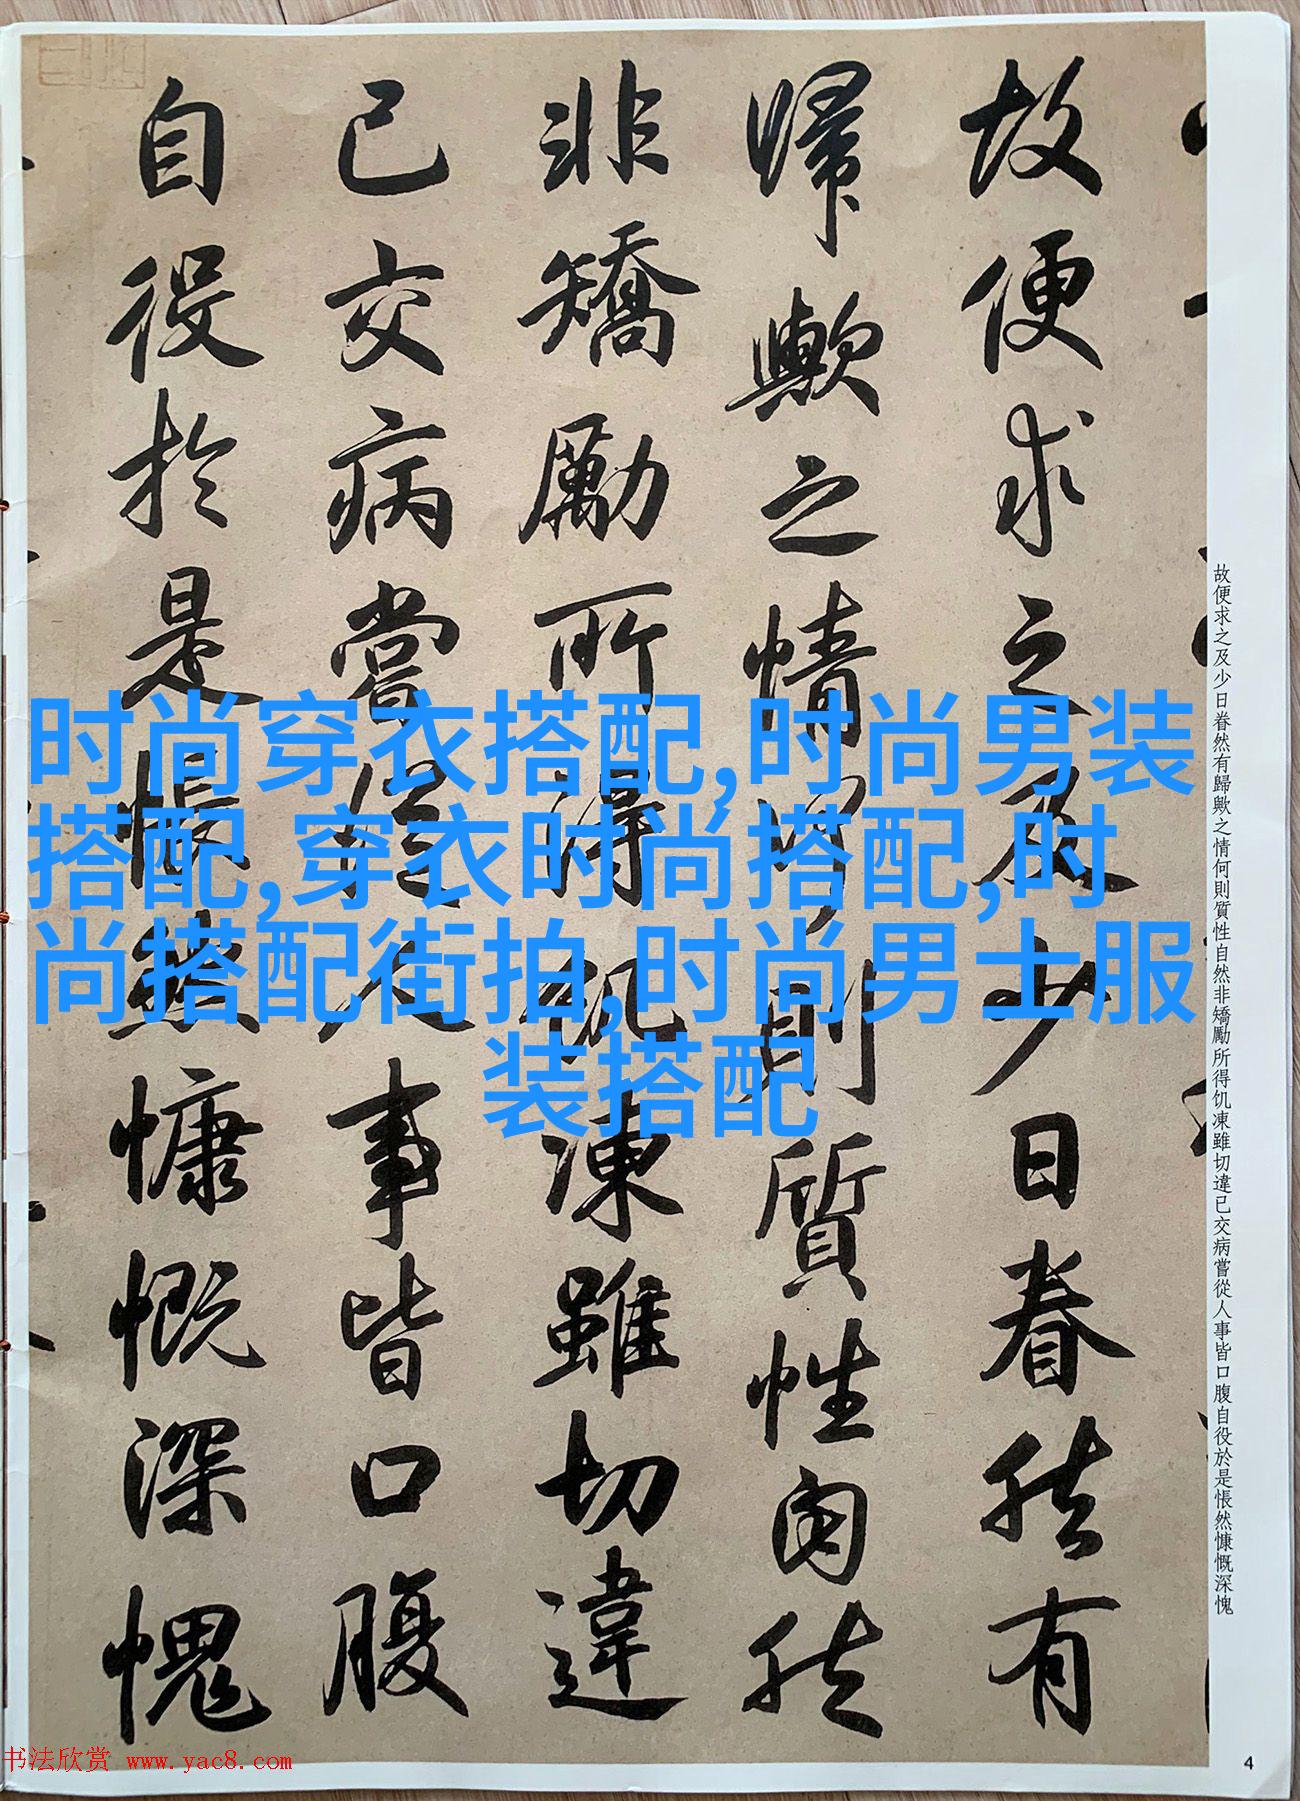 故便求之及少日眷然有
歸歟之情何則質性自然
非矯勵所得飢凍雖切違
己交病嘗從人事皆口腹
自役於是悵然慷慨深愧
故便求之及少日眷然有歸歟之情何則質性自然非矯勵所得饥凍雖切違已交病嘗從人事皆口腹自役於是悵然慷慨深愧
时尚穿衣搭配,时尚男装
搭配,穿衣时尚搭配,时
尚搭配街拍,时尚男士服
装搭配
书法欣赏 www.yac8.com
4